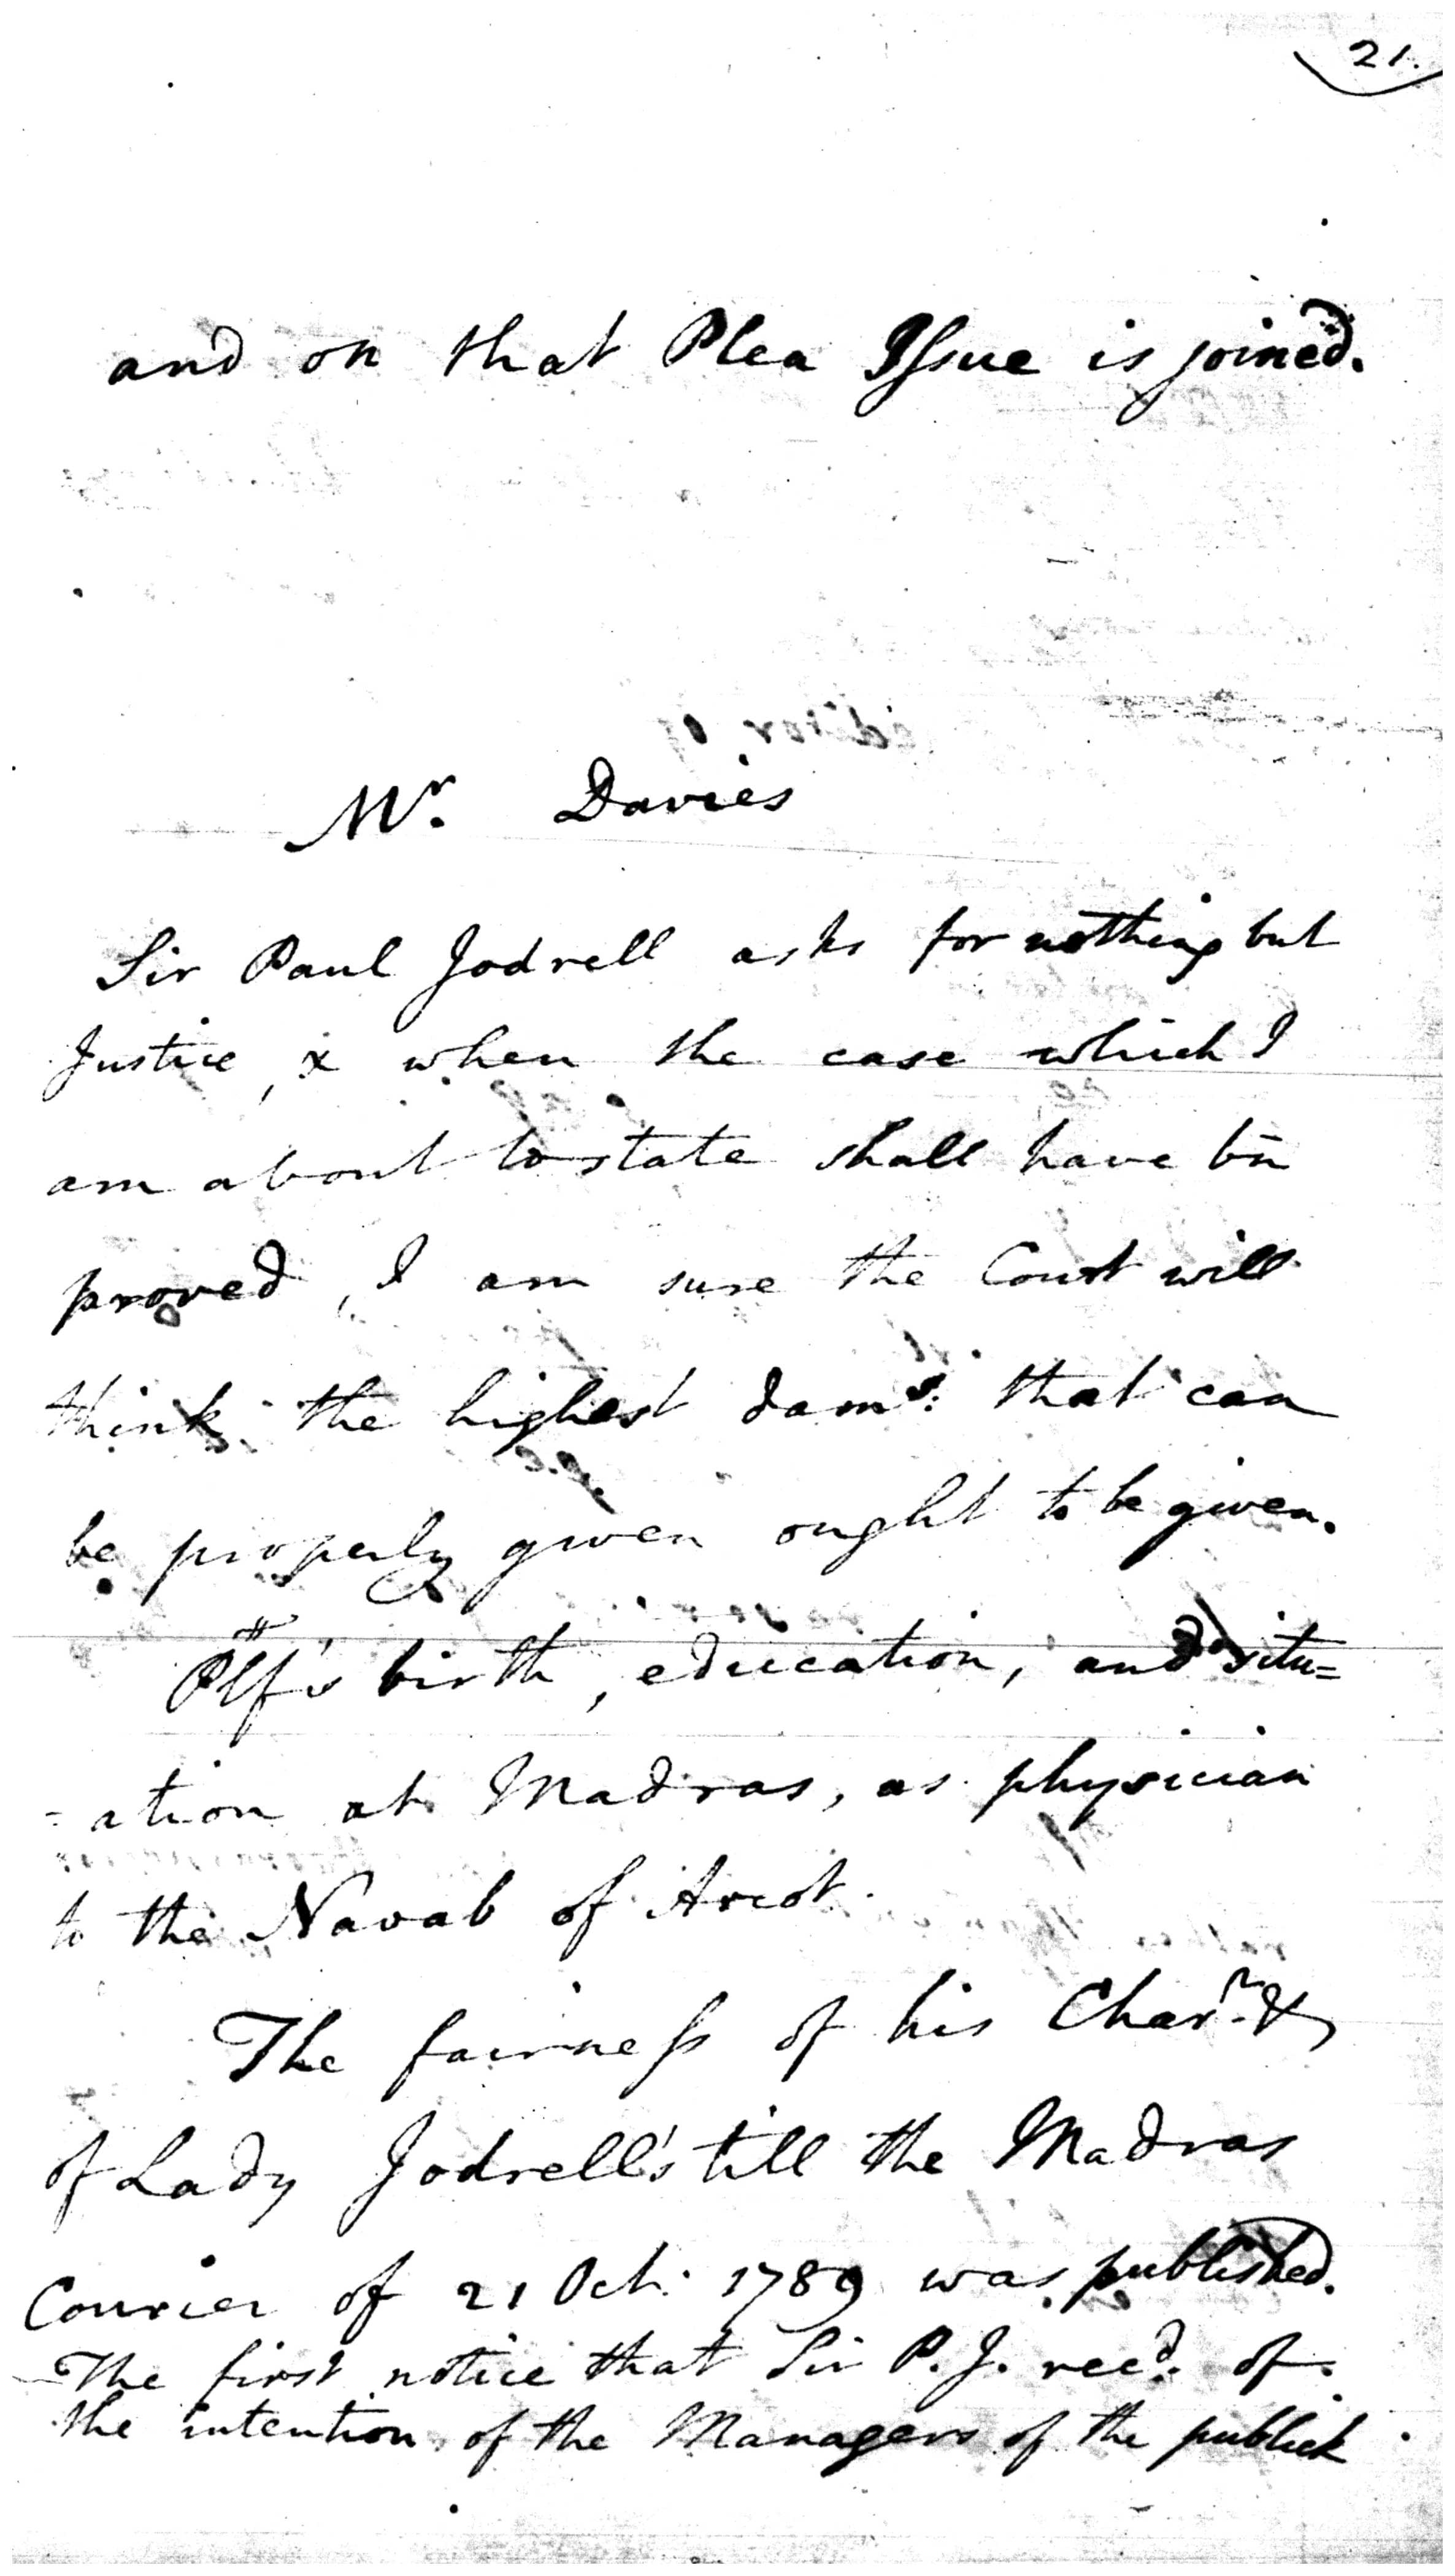 21.
and on that Plea Issue is joined.
Mr. Davies
Sir Paul Jodrell asks for nothing but
Justice, & when the case which I
am about to state shall have bn̄
proved, I am sure the Court will
think the highest dams. that can
be properly given ought to be given.
Pltf's birth, education, and situ=
=ation at Madras, as physician
to the Navab of Arcot.
The fairness of his Charr. &
of Lady Jodrell's till the Madras
Courier of 21 Oct. 1789 was published.
The first notice that Sir P. J. recd. of
the intention of the Managers of the publick